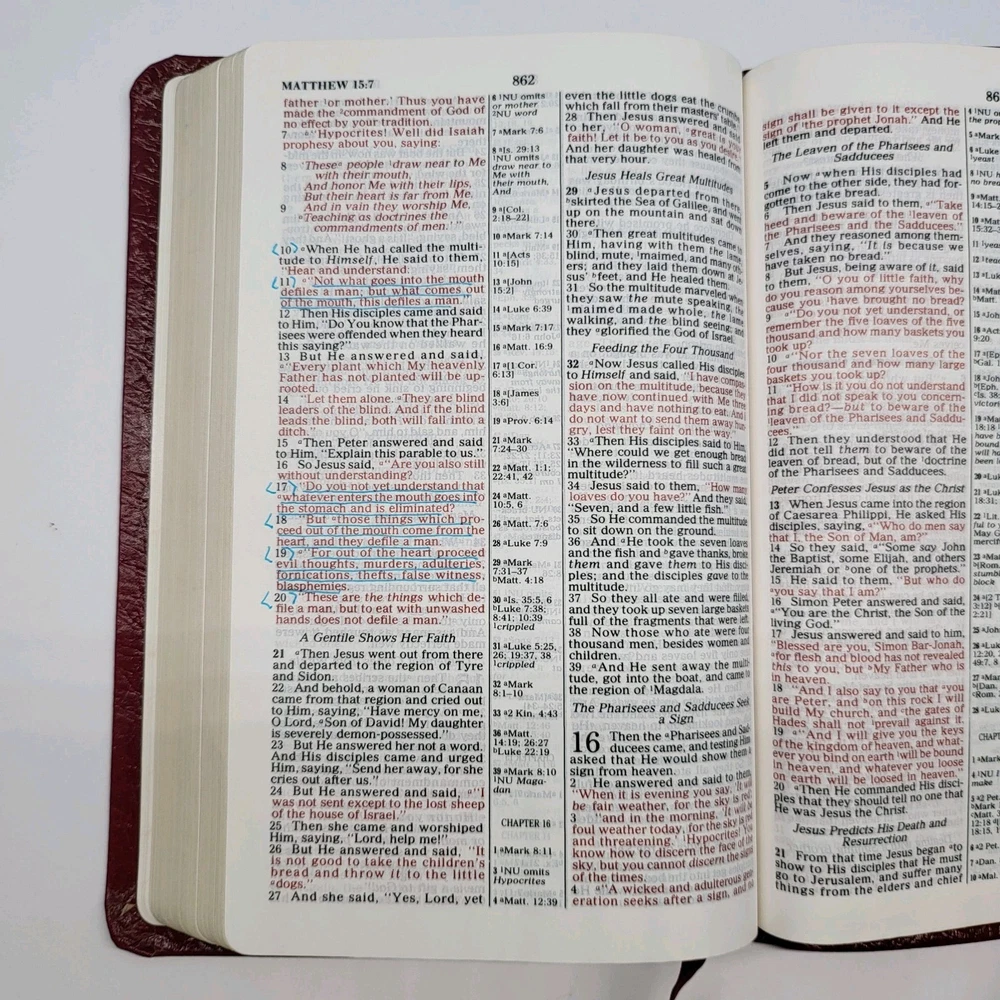 MATTHEW 15:7
862
father ¹or mother.' Thus you have
made the ²commandment of God of
no effect by your tradition.
7 ᵃ"Hypocrites! Well did Isaiah
prophesy about you, saying:
8 'Theseᵃ people ¹draw near to Me
with their mouth,
And honor Me with their lips,
But their heart is far from Me.
9 And in vain they worship Me,
ᵃTeaching as doctrines the
commandments of men.' "
10 ᵃWhen He had called the multi-
tude to Himself, He said to them,
"Hear and understand:
11 ᵃ"Not what goes into the mouth
defiles a man; but what comes out
of the mouth, this defiles a man."
12 Then His disciples came and said
to Him, "Do You know that the Phar-
isees were offended when they heard
this saying?"
13 But He answered and said,
ᵃ"Every plant which My heavenly
Father has not planted will be up-
rooted.
14 "Let them alone. ᵃThey are blind
leaders of the blind. And if the blind
leads the blind, both will fall into a
ditch."
15 ᵃThen Peter answered and said
to Him, "Explain this parable to us."
16 So Jesus said, ᵃ"Are you also still
without understanding?
17 "Do you not yet understand that
ᵃwhatever enters the mouth goes into
the stomach and is eliminated?
18 "But ᵃthose things which pro-
ceed out of the mouth come from the
heart, and they defile a man.
19 ᵃ"For out of the heart proceed
evil thoughts, murders, adulteries,
fornications, thefts, false witness,
blasphemies.
20 "These are the things which de-
file a man, but to eat with unwashed
hands does not defile a man."
A Gentile Shows Her Faith
21 ᵃThen Jesus went out from there
and departed to the region of Tyre
and Sidon.
22 And behold, a woman of Canaan
came from that region and cried out
to Him, saying, "Have mercy on me,
O Lord, ᵃSon of David! My daughter
is severely demon-possessed."
23 But He answered her not a word.
And His disciples came and urged
Him, saying, "Send her away, for she
cries out after us."
24 But He answered and said, ᵃ"I
was not sent except to the lost sheep
of the house of Israel."
25 Then she came and worshiped
Him, saying, "Lord, help me!"
26 But He answered and said, "It
is not good to take the children's
bread and throw it to the little
ᵃdogs."
27 And she said, "Yes, Lord, yet
6 ¹NU omits
or mother
²NU word
7 ᵃMark 7:6
8 ᵃIs. 29:13
¹NU omits
draw near to
Me with
their mouth,
And
9 ᵃ[Col.
2:18–22]
10 ᵃMark 7:14
11 ᵃ[Acts
10:15]
13 ᵃ[John
15:2]
14 ᵃLuke 6:39
15 ᵃMark 7:17
16 ᵃMatt. 16:9
17 ᵃ[1 Cor.
6:13]
18 ᵃ[James
3:6]
19 ᵃProv. 6:14
21 ᵃMark
7:24–30
22 ᵃMatt. 1:1;
22:41, 42
24 ᵃMatt.
10:5, 6
26 ᵃMatt. 7:6
28 ᵃLuke 7:9
29 ᵃMark
7:31–37
ᵇMatt. 4:18
30 ᵃIs. 35:5, 6
ᵇLuke 7:38;
8:41; 10:39
¹crippled
31 ᵃLuke 5:25,
26; 19:37, 38
¹crippled
32 ᵃMark
8:1–10
33 ᵃ2 Kin. 4:43
36 ᵃMatt.
14:19; 26:27
ᵇLuke 22:19
39 ᵃMark 8:10
¹NU Maga-
dan
CHAPTER 16
1 ᵃMark 8:11
3 ¹NU omits
Hypocrites
4 ᵃMatt. 12:39
even the little dogs eat the crumbs
which fall from their masters'
28 Then Jesus answered and said
to her, "O woman, ᵃgreat is your
faith! Let it be to you as you desire."
And her daughter was healed from
that very hour.
Jesus Heals Great Multitudes
29 ᵃJesus departed from there,
ᵇskirted the Sea of Galilee, and went
up on the mountain and sat down
there.
30 ᵃThen great multitudes came to
Him, having with them the lame,
blind, mute, ¹maimed, and many oth-
ers; and they laid them down at Je-
sus' ᵇfeet, and He healed them.
31 So the multitude marveled when
they saw the mute speaking, the
¹maimed made whole, the lame
walking, and the blind seeing; and
they ᵃglorified the God of Israel.
Feeding the Four Thousand
32 ᵃNow Jesus called His disciples
to Himself and said, "I have compas-
sion on the multitude, because they
have now continued with Me three
days and have nothing to eat. And I
do not want to send them away hun-
gry, lest they faint on the way."
33 ᵃThen His disciples said to Him,
"Where could we get enough bread
in the wilderness to fill such a great
multitude?"
34 Jesus said to them, "How many
loaves do you have?" And they said,
"Seven, and a few little fish."
35 So He commanded the multitude
to sit down on the ground.
36 And ᵃHe took the seven loaves
and the fish and ᵇgave thanks, broke
them and gave them to His disci-
ples; and the disciples gave to the
multitude.
37 So they all ate and were filled,
and they took up seven large baskets
full of the fragments that were left.
38 Now those who ate were four
thousand men, besides women and
children.
39 ᵃAnd He sent away the multi-
tude, got into the boat, and came to
the region of ¹Magdala.
The Pharisees and Sadducees Seek
a Sign
16 Then the ᵃPharisees and Sad-
ducees came, and testing Him
asked that He would show them a
sign from heaven.
2 He answered and said to them,
"When it is evening you say, 'It will
be fair weather, for the sky is red';
3 "and in the morning, 'It will be
foul weather today, for the sky is red
and threatening.' ¹Hypocrites! You
know how to discern the face of the
sky, but you cannot discern the signs
of the times.
4 ᵃ"A wicked and adulterous gen-
eration seeks after a sign, and no
86
sign shall be given to it except the
sign of ¹the prophet Jonah." And He
left them and departed.
The Leaven of the Pharisees and
Sadducees
5 Now ᵃwhen His disciples had
come to the other side, they had for-
gotten to take bread.
6 Then Jesus said to them, ᵃ"Take
heed and beware of the ¹leaven of
the Pharisees and the Sadducees."
7 And they reasoned among them-
selves, saying, "It is because we
have taken no bread."
8 But Jesus, being aware of it, said
to them, ᵃ"O you of little faith, why
do you reason among yourselves be-
cause you ¹have brought no bread?
9 ᵃ"Do you not yet understand, or
remember the five loaves of the five
thousand and how many baskets you
took up?
10 ᵃ"Nor the seven loaves of the
four thousand and how many large
baskets you took up?
11 "How is it you do not understand
that I did not speak to you concern-
ing bread?—but to beware of the
leaven of the Pharisees and Saddu-
cees."
12 Then they understood that He
did not tell them to beware of the
leaven of bread, but of the ¹doctrine
of the Pharisees and Sadducees.
Peter Confesses Jesus as the Christ
13 When Jesus came into the region
of Caesarea Philippi, He asked His
disciples, saying, ᵃ"Who do men say
that I, the Son of Man, am?"
14 So they said, ᵃ"Some say John
the Baptist, some Elijah, and others
Jeremiah or ᵇone of the prophets."
15 He said to them, "But who do
ᵃyou say that I am?"
16 Simon Peter answered and said,
ᵃ"You are the Christ, the Son of the
living God."
17 Jesus answered and said to him,
"Blessed are you, Simon Bar-Jonah,
ᵃfor flesh and blood has not revealed
this to you, but ᵇMy Father who is
in heaven.
18 "And I also say to you that ᵃyou
are Peter, and ᵇon this rock I will
build My church, and ᶜthe gates of
Hades shall not ¹prevail against it.
19 ᵃ"And I will give you the keys
of the kingdom of heaven, and what-
ever you bind on earth ¹will be bound
in heaven, and whatever you loose
on earth will be loosed in heaven."
20 ᵃThen He commanded His disci-
ples that they should tell no one that
He was Jesus the Christ.
Jesus Predicts His Death and
Resurrection
21 From that time Jesus began ᵃto
show to His disciples that He must
go to Jerusalem, and suffer many
things from the elders and chief